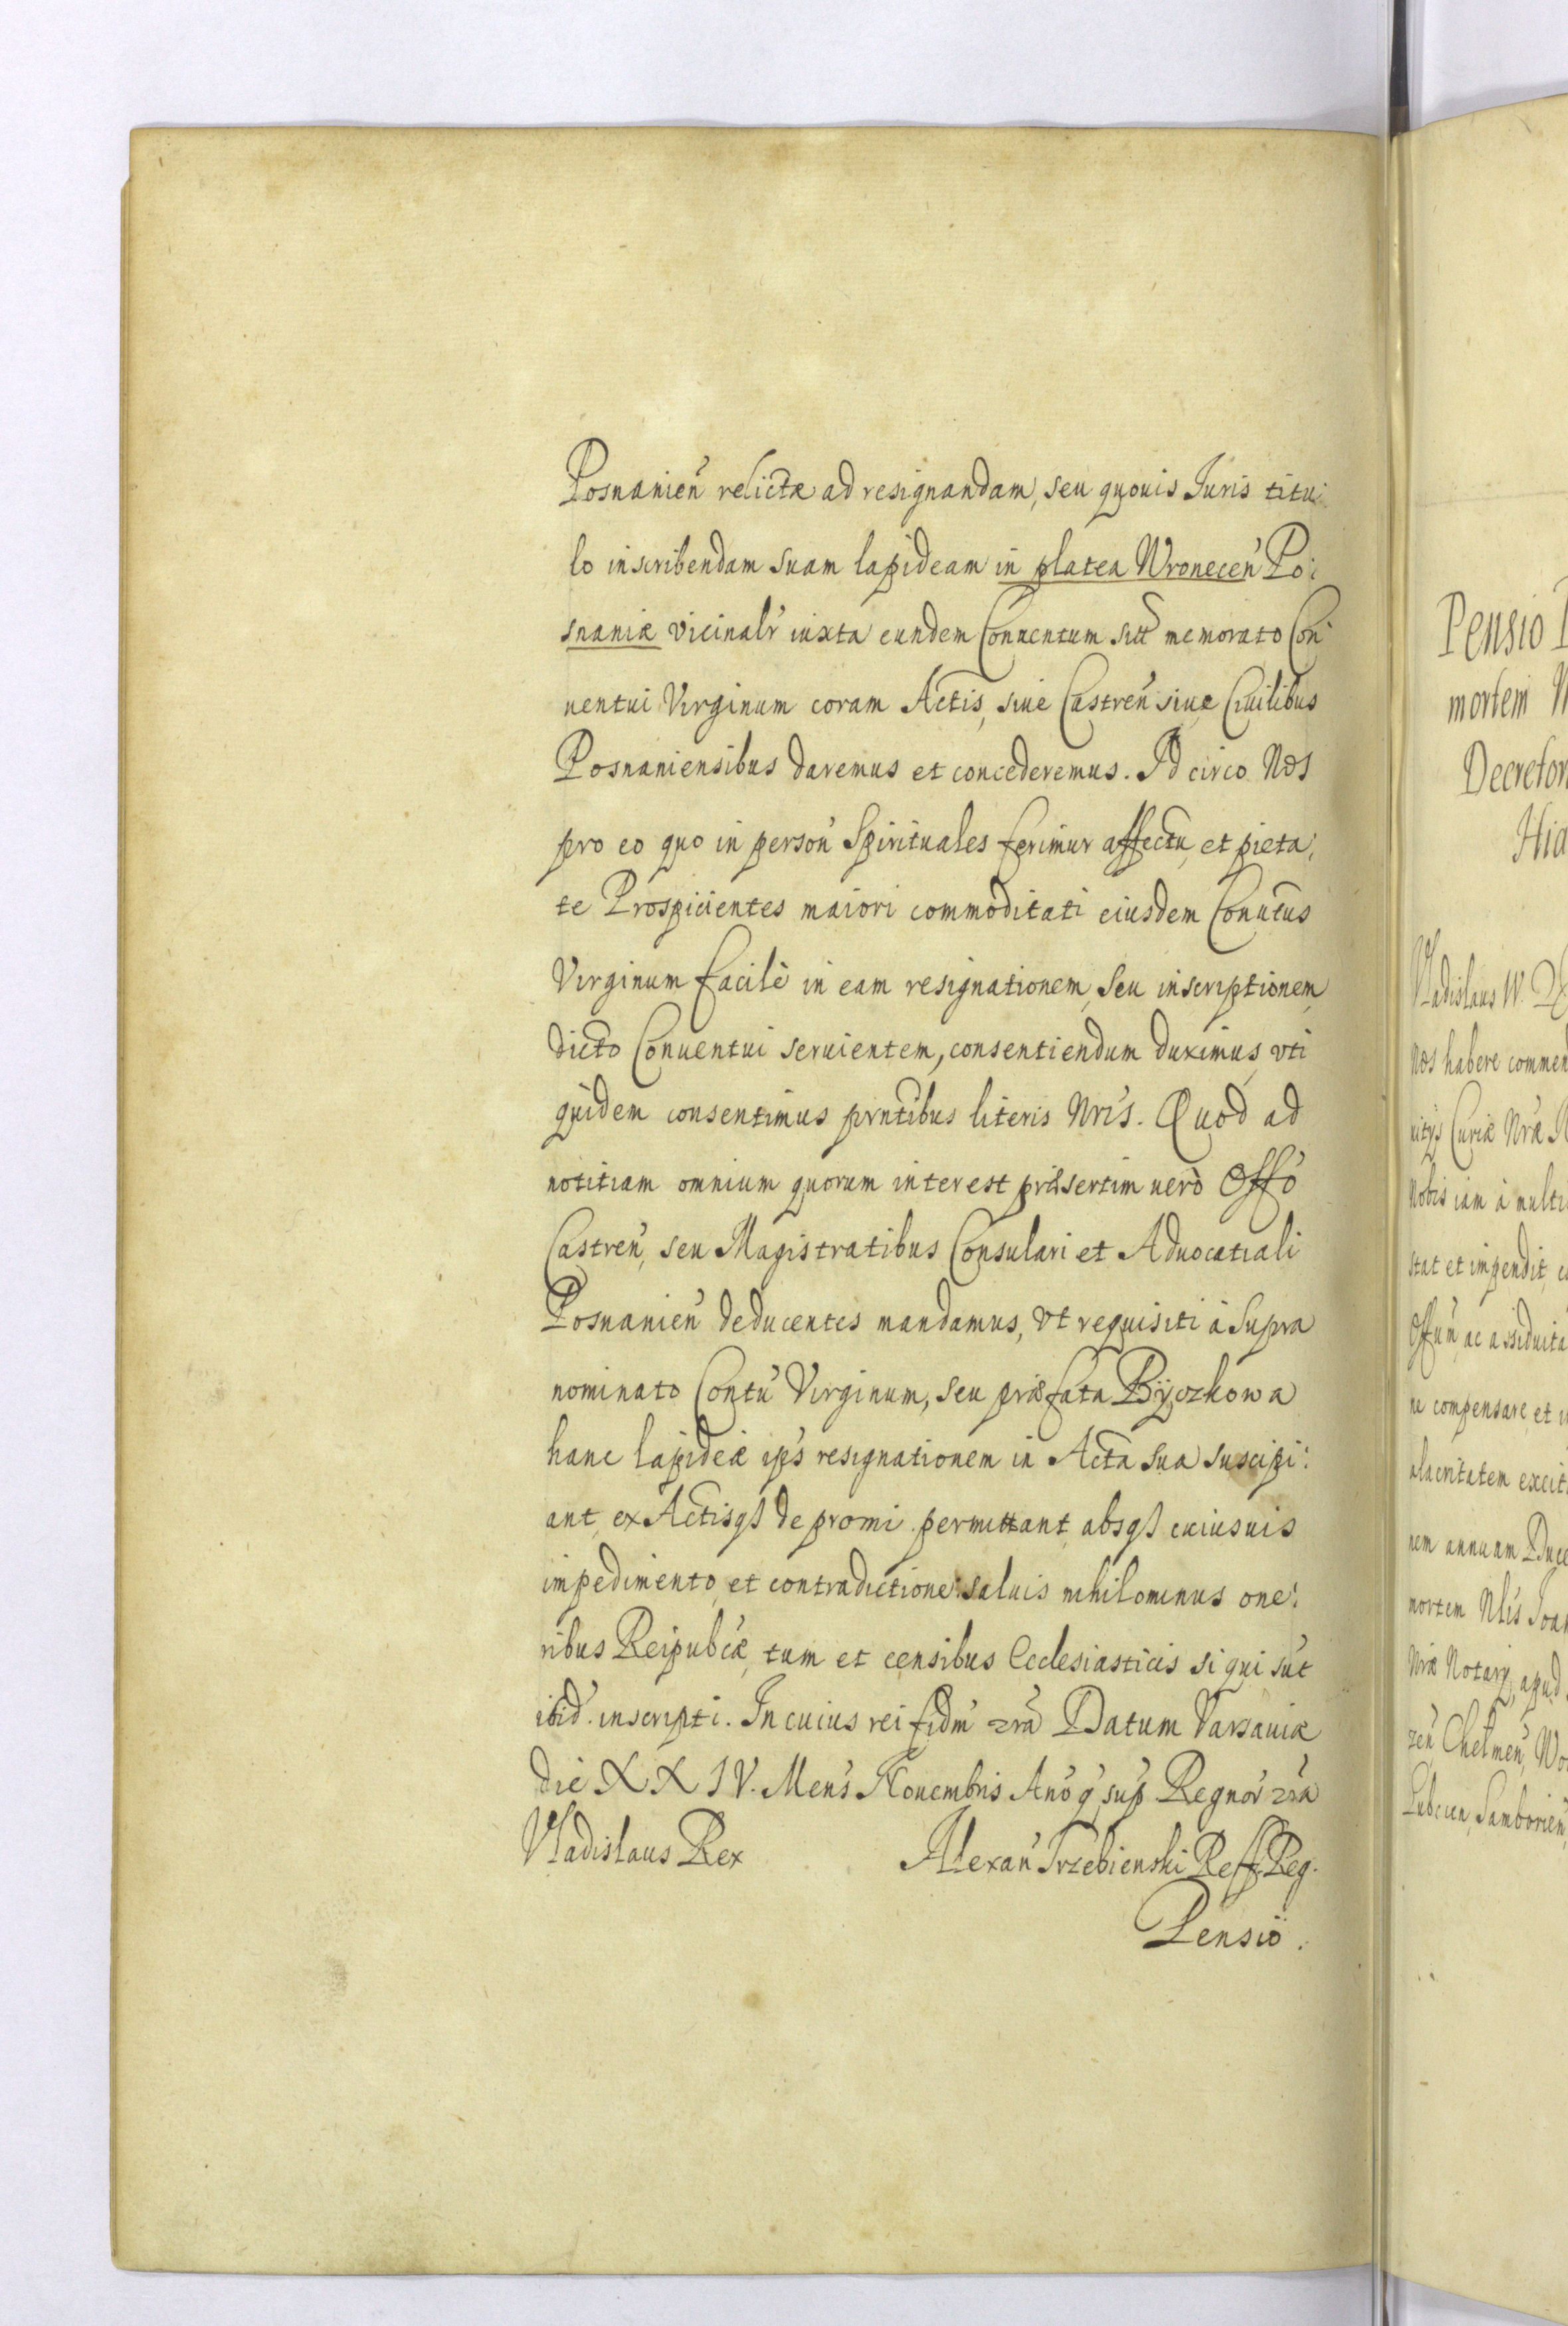 Posnanień relictæ ad resignandam, seu quouis Iuris titu:
lo inscribendam suam lapideam in platea Wronecen̄ Po:
snaniæ vicinalr̄ iuxta eundem Conuentum sitt̄ memorato Con:
uentui Virginum coram Actis, siue Castren̄ siue Ciuilibus
Posnaniensibus daremus et concederemus. Id circo Nos
pro eo quo in person̄ Spirituales ferimur affectu, et pieta:
te Prospicientes maiori commoditati eiusdem Conutus
Virginum facilè in eam resignationem, seu inscriptionem
dicto Conuentui seruientem, consentiendum duximus, vti
quidem consentimus prntibus literis Nris. Quod ad
notitiam omnium quorum interest præsertim uerò Offo
Castren̄, seu Magistratibus Consulari et Aduocatiali
Posnanień deducentes mandamus, vt requisiti à supra
nominato Contū Virginum, seu præfata Byczkowa
hanc lapideæ ip's resignationem in Acta sua suscipi:
ant, ex Actisq3 de promi permittant, absq3 cuiusuis
impedimento, et contradictione: saluis nihilominus one:
ribus Reipubcæ, tum et censibus Ecclesiasticis si qui sūt
ibid. inscripti. In cuius rei fidm̄ 2rā Datum Varsauiæ
die XXIV. Men's Nouembris Anō q̄ sup̄ Regnor̄ 2rā
Vladislaus Rex Alexan̄ Trzebienski Reff. Reg.
Pensio.
Pensio
mortem
Decretor
Hia
Vladislaus IV. D
Nos habere commen
uitijs Curiæ Nræ
Nobis iam à multi
stat et impendit,
Offun̄, ac assiduita
ne compensare, et
alacritatem excit
nem annuam Duce
mortem Nlis Ioan
Nræ Notarij, apud
Chełmen̄,
Samborien̄